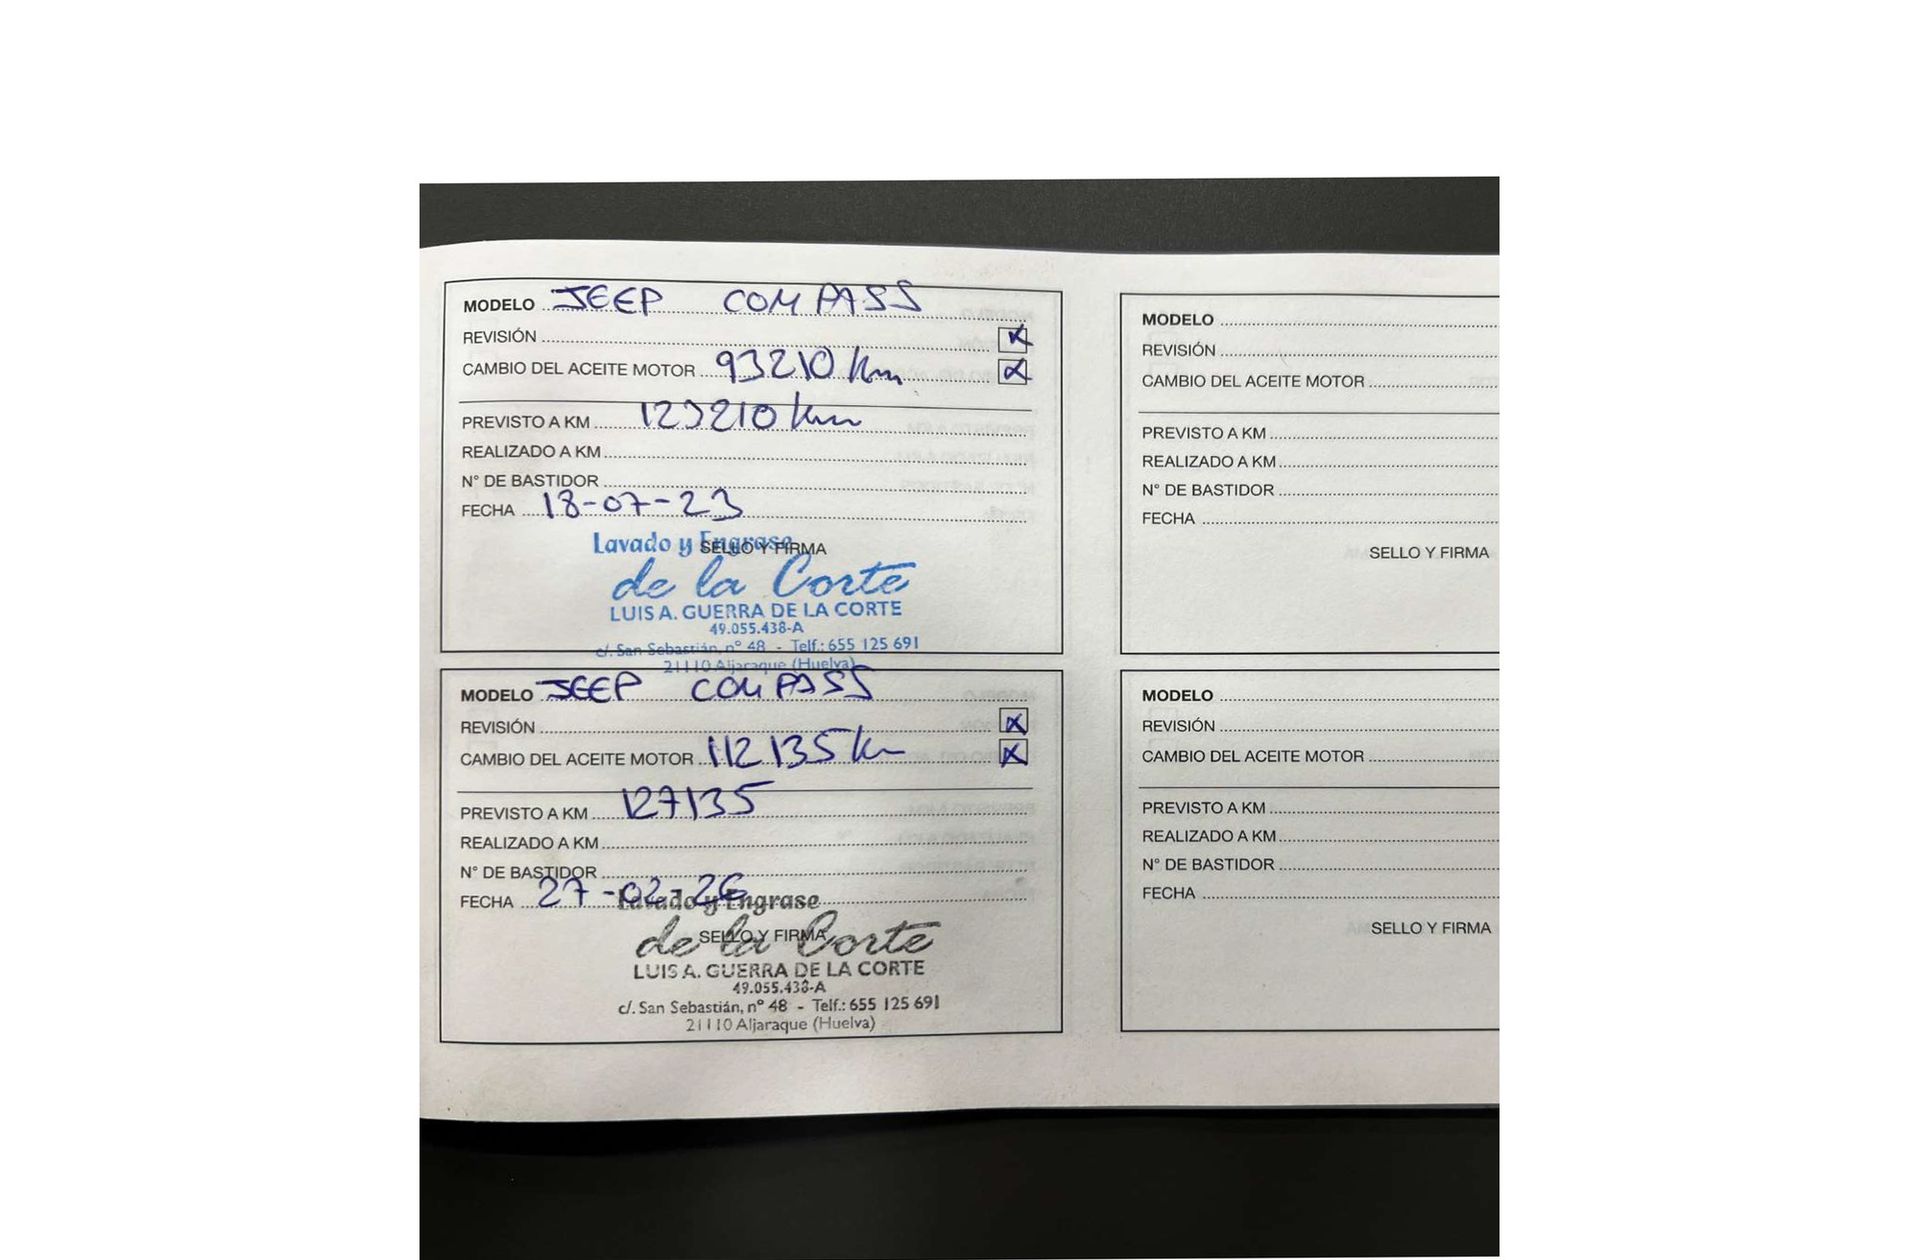 MODELO JEEP COMPASS
REVISIÓN
CAMBIO DEL ACEITE MOTOR 93210 km
PREVISTO A KM 123210 km
REALIZADO A KM
N° DE BASTIDOR
FECHA 18-07-23
SELLO Y FIRMA
Lavado y Engrase
de la Corte
LUIS A. GUERRA DE LA CORTE
49.055.438-A
c/. San Sebastián, nº 48 - Telf.: 655 125 691
21110 Aljaraque (Huelva)
MODELO JEEP COMPASS
REVISIÓN
CAMBIO DEL ACEITE MOTOR 112135 km
PREVISTO A KM 127135
REALIZADO A KM
N° DE BASTIDOR
FECHA 27-02-26
Lavado y Engrase
SELLO Y FIRMA
de la Corte
LUIS A. GUERRA DE LA CORTE
49.055.438-A
c/. San Sebastián, nº 48 - Telf.: 655 125 691
21110 Aljaraque (Huelva)
MODELO
REVISIÓN
CAMBIO DEL ACEITE MOTOR
PREVISTO A KM
REALIZADO A KM
N° DE BASTIDOR
FECHA
SELLO Y FIRMA
MODELO
REVISIÓN
CAMBIO DEL ACEITE MOTOR
PREVISTO A KM
REALIZADO A KM
N° DE BASTIDOR
FECHA
SELLO Y FIRMA